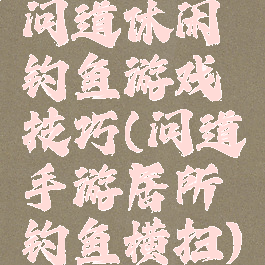 问道休闲
钓鱼游戏
技巧(问道
手游居所
钓鱼横扫)